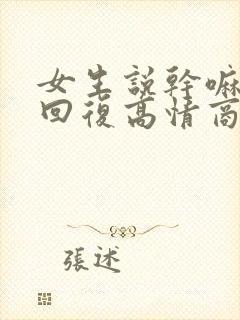 女生説幹嘛
回復高情商
張述